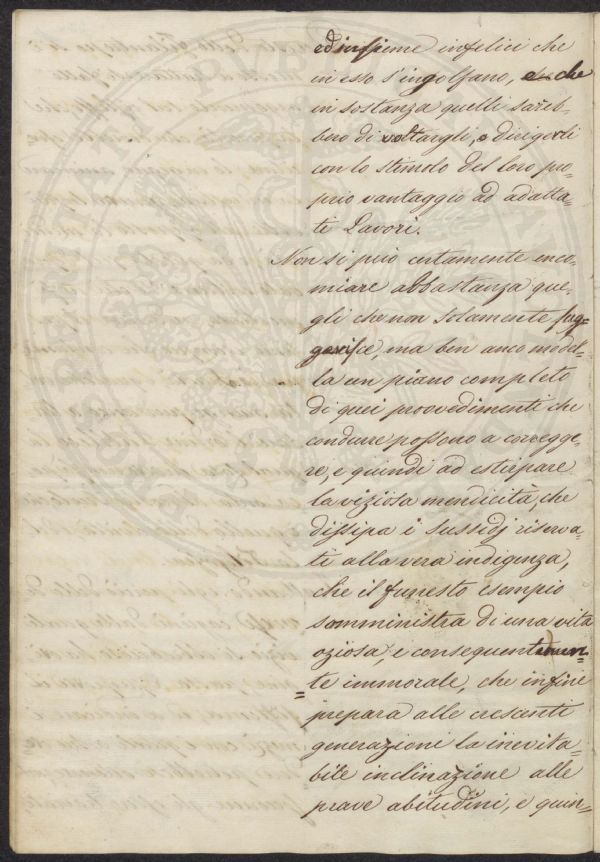 ed insieme infelici che
in esso s'ingolfano, e che
in sostanza quelli sareb=
bero di voltargli, e dirigerli
con lo stimolo del loro pro=
prio vantaggio ad adatta=
ti Lavori.
Non si può certamente enco=
miare abbastanza que=
gli che non solamente sug=
gerisce, ma ben anco model=
la un piano completo
di quei provvedimenti che
condurre possono a corregge=
re, e quindi ad estirpare
la viziosa mendicità, che
dissipa i sussidj riserva=
ti alla vera indigenza,
che il funesto esempio
somministra di una vita
oziosa, e conseguentemen=
=te immorale, che infine
prepara alle crescenti
generazioni la inevita=
bile inclinazione alle
prave abitudini, e quin=
PUBLI
PROSPERITATI